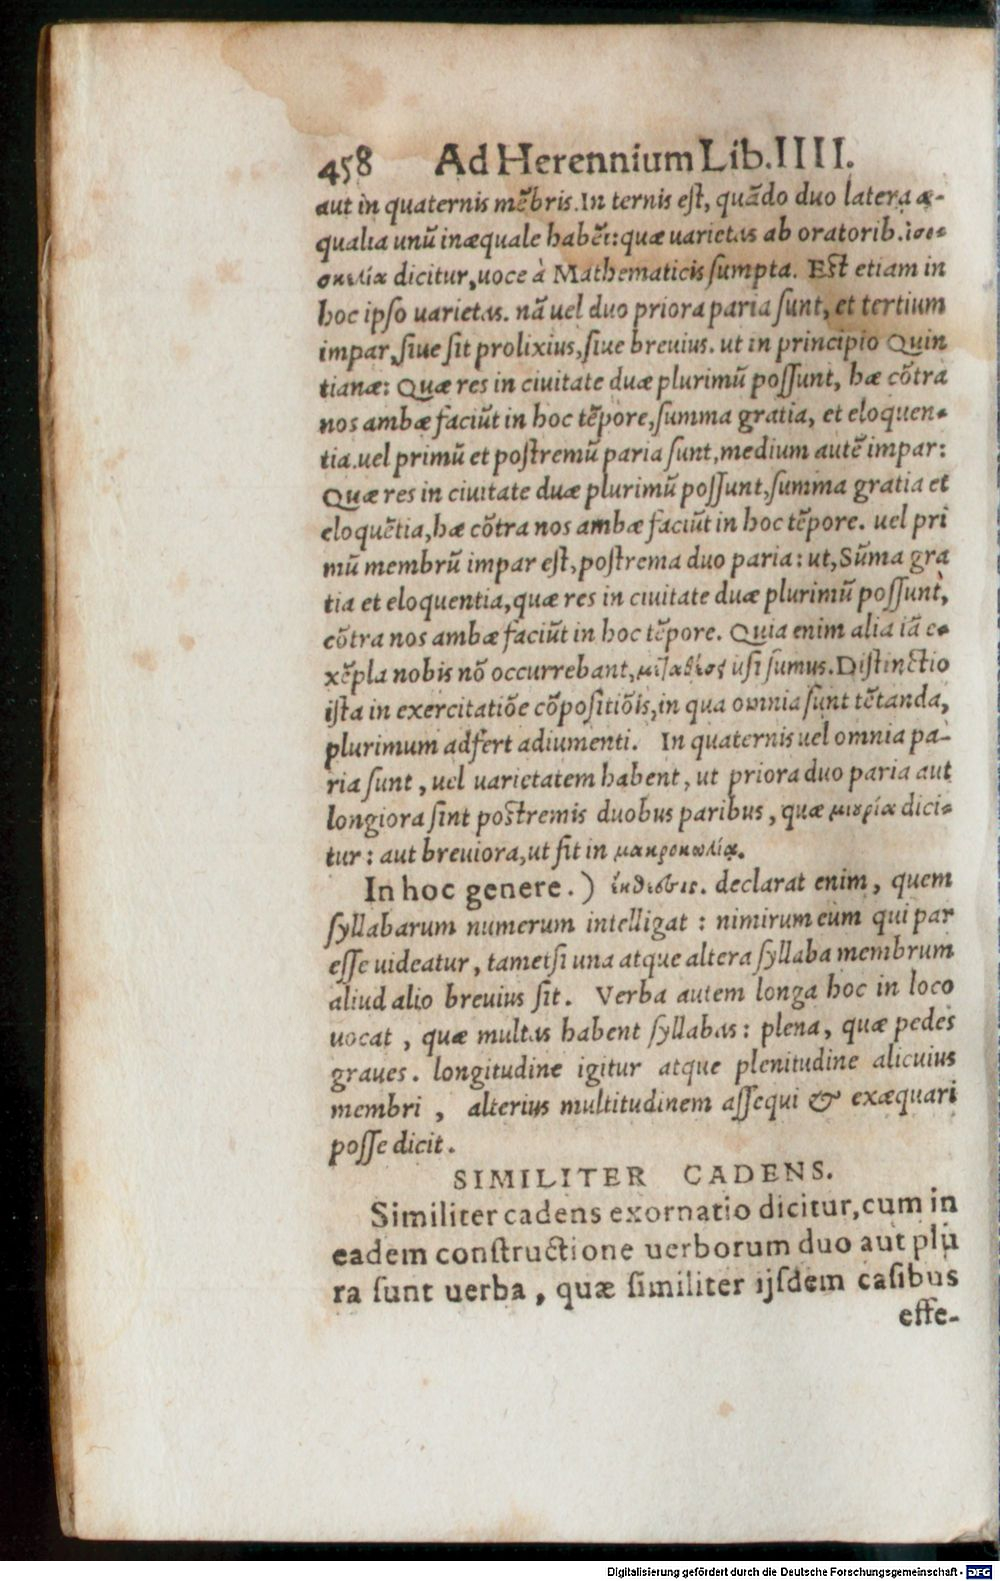 458 Ad Herennium Lib. IIII.
aut in quaternis mẽbris. In ternis est, quãdo duo latera æ-
qualia unũ inæquale habẽt: quæ uarietas ab oratorib. ἰσο-
σκελία dicitur, uoce à Mathematicis sumpta. Est etiam in
hoc ipso uarietas. nã uel duo priora paria sunt, et tertium
impar, siue sit prolixius, siue breuius. ut in principio Quin
tianæ: Quæ res in ciuitate duæ plurimũ possunt, hæ cõtra
nos ambæ faciũt in hoc tẽpore, summa gratia, et eloquen-
tia. uel primũ et postremũ paria sunt, medium autẽ impar:
Quæ res in ciuitate duæ plurimũ possunt, summa gratia et
eloquẽtia, hæ cõtra nos ambæ faciũt in hoc tẽpore. uel pri
mũ membrũ impar est, postrema duo paria: ut, Sũma gra
tia et eloquentia, quæ res in ciuitate duæ plurimũ possunt,
cõtra nos ambæ faciũt in hoc tẽpore. Quia enim alia iã e-
xẽpla nobis nõ occurrebant, usi sumus. Distinctio
ista in exercitatiõe cõpositiõis, in qua omnia sunt tẽtanda,
plurimum adfert adiumenti. In quaternis uel omnia pa-
ria sunt, uel uarietatem habent, ut priora duo paria aut
longiora sint postremis duobus paribus, quæ dici-
tur: aut breuiora, ut sit in μακροκωλίᾳ.
In hoc genere.) ἔκθεσις. declarat enim, quem
syllabarum numerum intelligat: nimirum eum qui par
esse uideatur, tametsi una atque altera syllaba membrum
aliud alio breuius sit. Verba autem longa hoc in loco
uocat, quæ multas habent syllabas: plena, quæ pedes
graues. longitudine igitur atque plenitudine alicuius
membri, alterius multitudinem assequi & exæquari
posse dicit.
SIMILITER CADENS.
Similiter cadens exornatio dicitur, cum in
eadem constructione uerborum duo aut plu
ra sunt uerba, quæ similiter ijsdem casibus
effe-
Digitalisierung gefördert durch die Deutsche Forschungsgemeinschaft - DFG